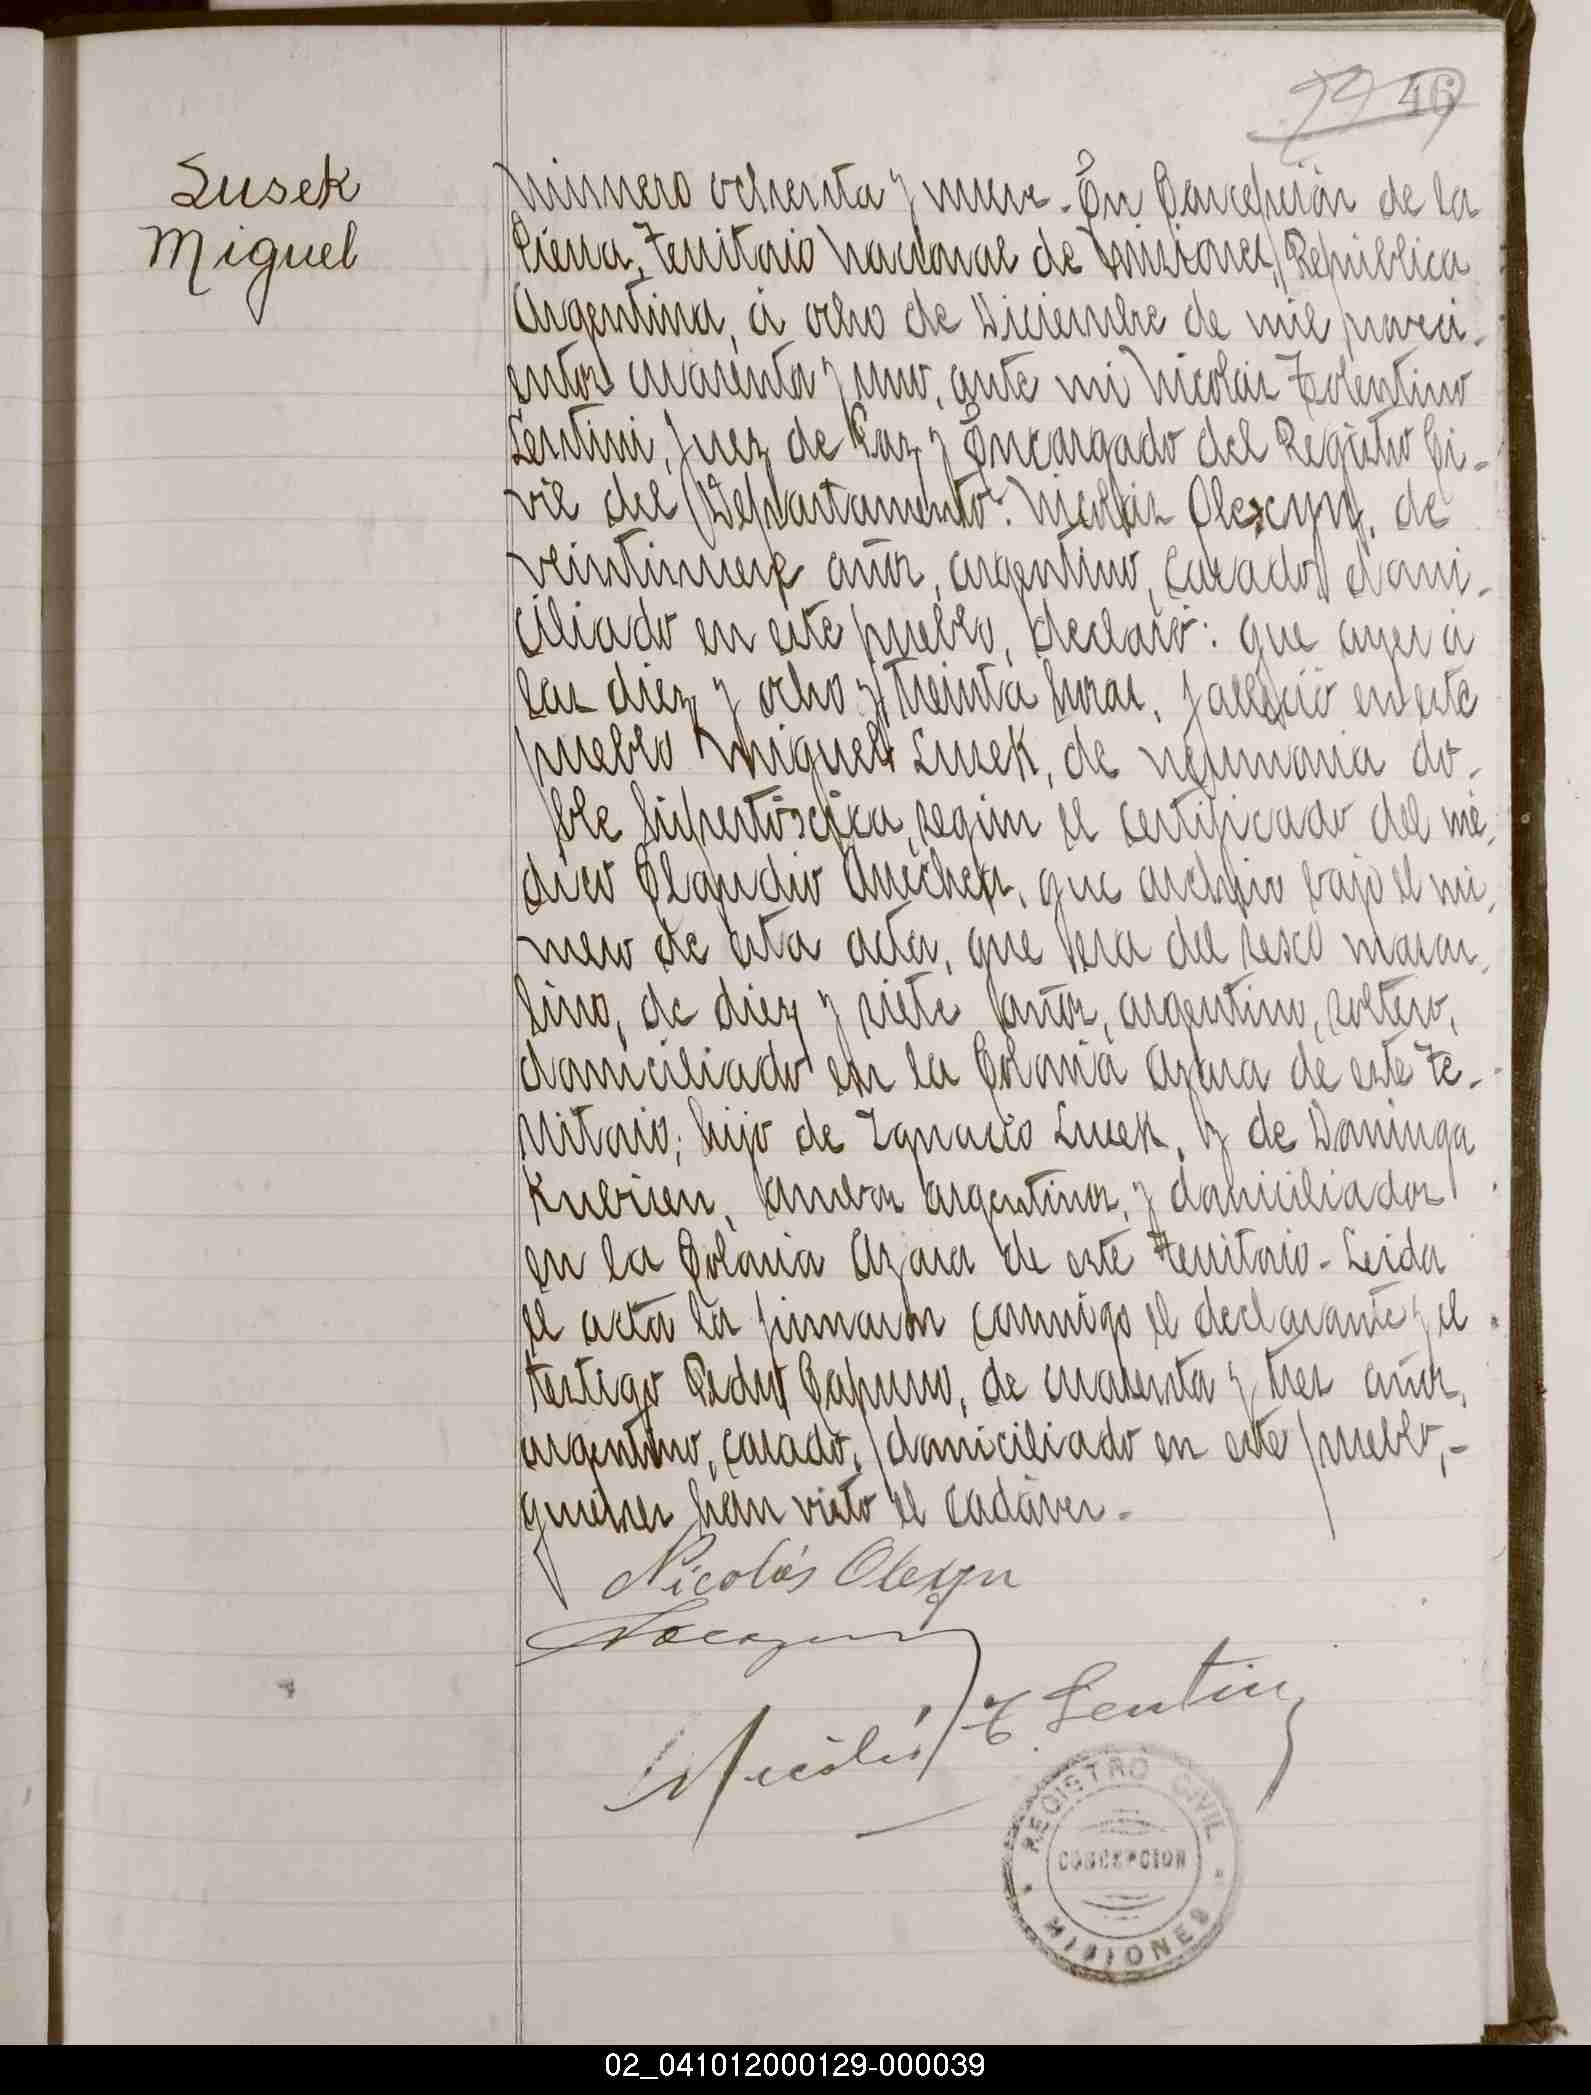 46
Lusek
Miguel
Número ochenta y nueve. En Concepción de la
Sierra, Territorio Nacional de Misiones, República
Argentina, á ocho de Diciembre de mil noveci-
entos cuarenta y uno, ante mi Nicolás Tolentino
Lentini, Juez de Paz y Encargado del Registro Ci-
vil del Departamento: Nicolás Olexyn, de
veintinueve años, argentino, casado, domi-
ciliado en este pueblo, declaró: que ayer á
las diez y ocho y treinta horas, falleció en este
pueblo Miguel Lusek, de neumonia do-
ble, según el certificado del mé-
dico Claudio que archivo bajo el nú-
mero de esta acta, que era del sexo mascu-
lino, de diez y siete años, argentino, soltero,
domiciliado en la Colonia Azara de este Te-
rritorio; hijo de Ignacio Lusek, y de Dominga
Kubisen, ambos argentinos, y domiciliados
en la Colonia Azara de este Territorio. Leida
el acta la firmaron conmigo el declarante y el
testigo Pedro de cuarenta y tres años,
argentino, casado, domiciliado en este pueblo,-
quienes han visto el cadáver.
Nicolás Olexyn
Nicolás T. Lentini
REGISTRO CIVIL
CONCEPCION
MISIONES
02_041012000129-000039